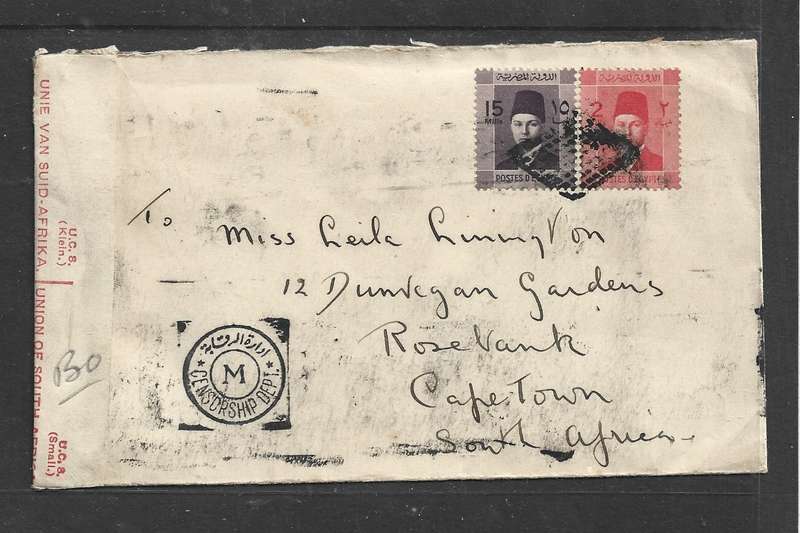 UNIE VAN SUID-AFRIKA.
U.C.S.
(Klein.)
UNION OF SOUTH
U.C.S.
(Small.)
BO
الدولة المصرية
15 ١٥
Mills
POSTES D'
الدولة المصرية
2 ٢
POSTES D'EGYPTE
To
Miss Leila Linington
12 Dunvegan Gardens
Rosebank
Cape Town
South Africa.
ادارة الرقابة
M
CENSORSHIP DEPT.